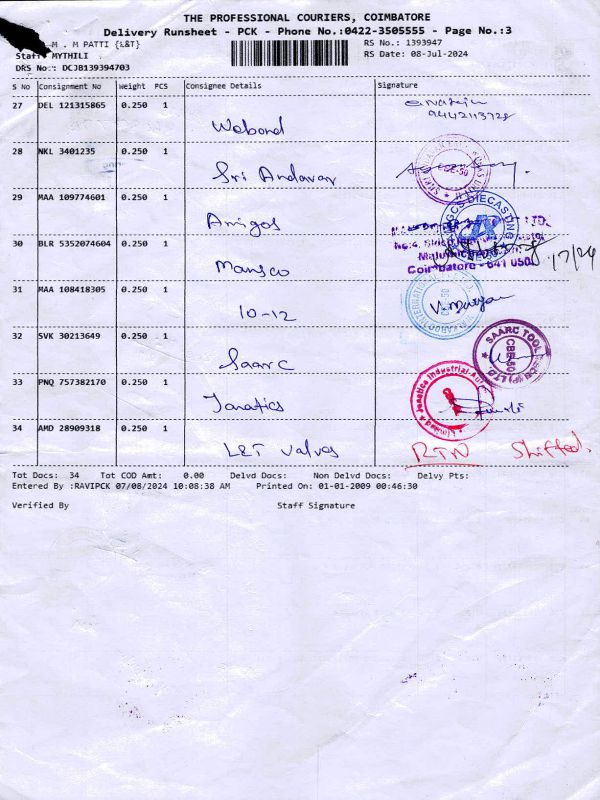 THE PROFESSIONAL COURIERS, COIMBATORE
Delivery Runsheet - PCK - Phone No.:0422-3505555 - Page No.:3
M . M PATTI {L&T}
RS No.: 1393947
Staff MYTHILI
RS Date: 08-Jul-2024
DRS No.: DCJB139394703
S No Consignment No Weight PCS Consignee Details Signature
27 DEL 121315865 0.250 1
9442113728
Wabond
28 NKL 3401235 0.250 1
Sri Andavar
29 MAA 109774601 0.250 1
Amigos
GCS DIECASTING
LTD.
Coimbatore - 641 050
30 BLR 5352074604 0.250 1
Mansco
31 MAA 108418305 0.250 1
10-12
32 SVK 30213649 0.250 1
Saarc
SAARC TOOL
CBE-50
33 PNQ 757382170 0.250 1
Janatics
Janatics Industrial Auto
34 AMD 28909318 0.250 1
L&T Valves RTN Shifted.
Tot Docs: 34 Tot COD Amt: 0.00 Delvd Docs: Non Delvd Docs: Delvy Pts:
Entered By :RAVIPCK 07/08/2024 10:08:38 AM Printed On: 01-01-2009 00:46:30
Verified By Staff Signature